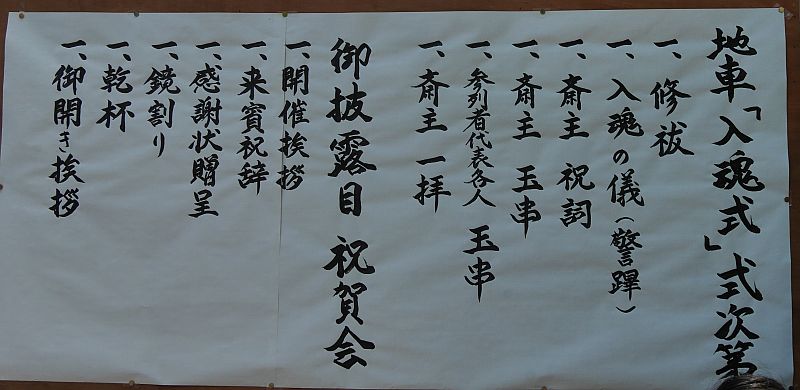 地車「入魂式」式次第
一、修祓
一、入魂の儀(警蹕)
一、斎主 祝詞
一、斎主 玉串
一、参列者代表各人 玉串
一、斎主一拝
御披露目 祝賀会
一、開催挨拶
一、来賓祝辞
一、感謝状贈呈
一、鏡割り
一、乾杯
一、御開き挨拶